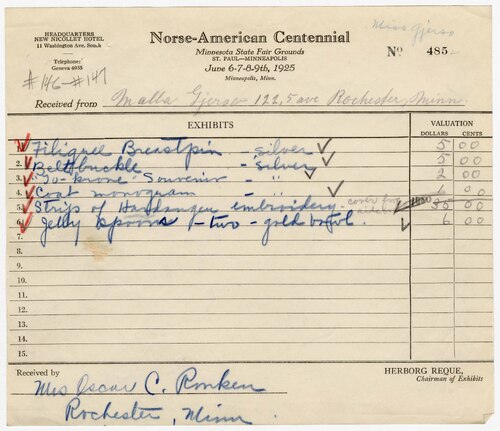 Miss Gjerso
HEADQUARTERS
NEW NICOLLET HOTEL
11 Washington Ave. South
Telephone:
Geneva 6935
#146-#147
Norse-American Centennial
Minnesota State Fair Grounds
ST. PAUL—MINNEAPOLIS
June 6-7-8-9th, 1925
Minneapolis, Minn.
No 485
Received from Malla Gjerso 122, 5 ave Rochester, Minn.
EXHIBITS
VALUATION
DOLLARS CENTS
1. Filigree Breastpin - silver 5 00
2. Belt buckle - Silver 5 00
3. Souvenir - " 2 00
4. Coat monogram - " 00
5. Strip of Hardanger embroidery 00
6. Jelly spoons - two - gold bowl. 6 00
7.
8.
9.
10.
11.
12.
13.
14.
15.
Received by
HERBORG REQUE,
Chairman of Exhibits
Mrs Oscar C. Ronken
Rochester, Minn